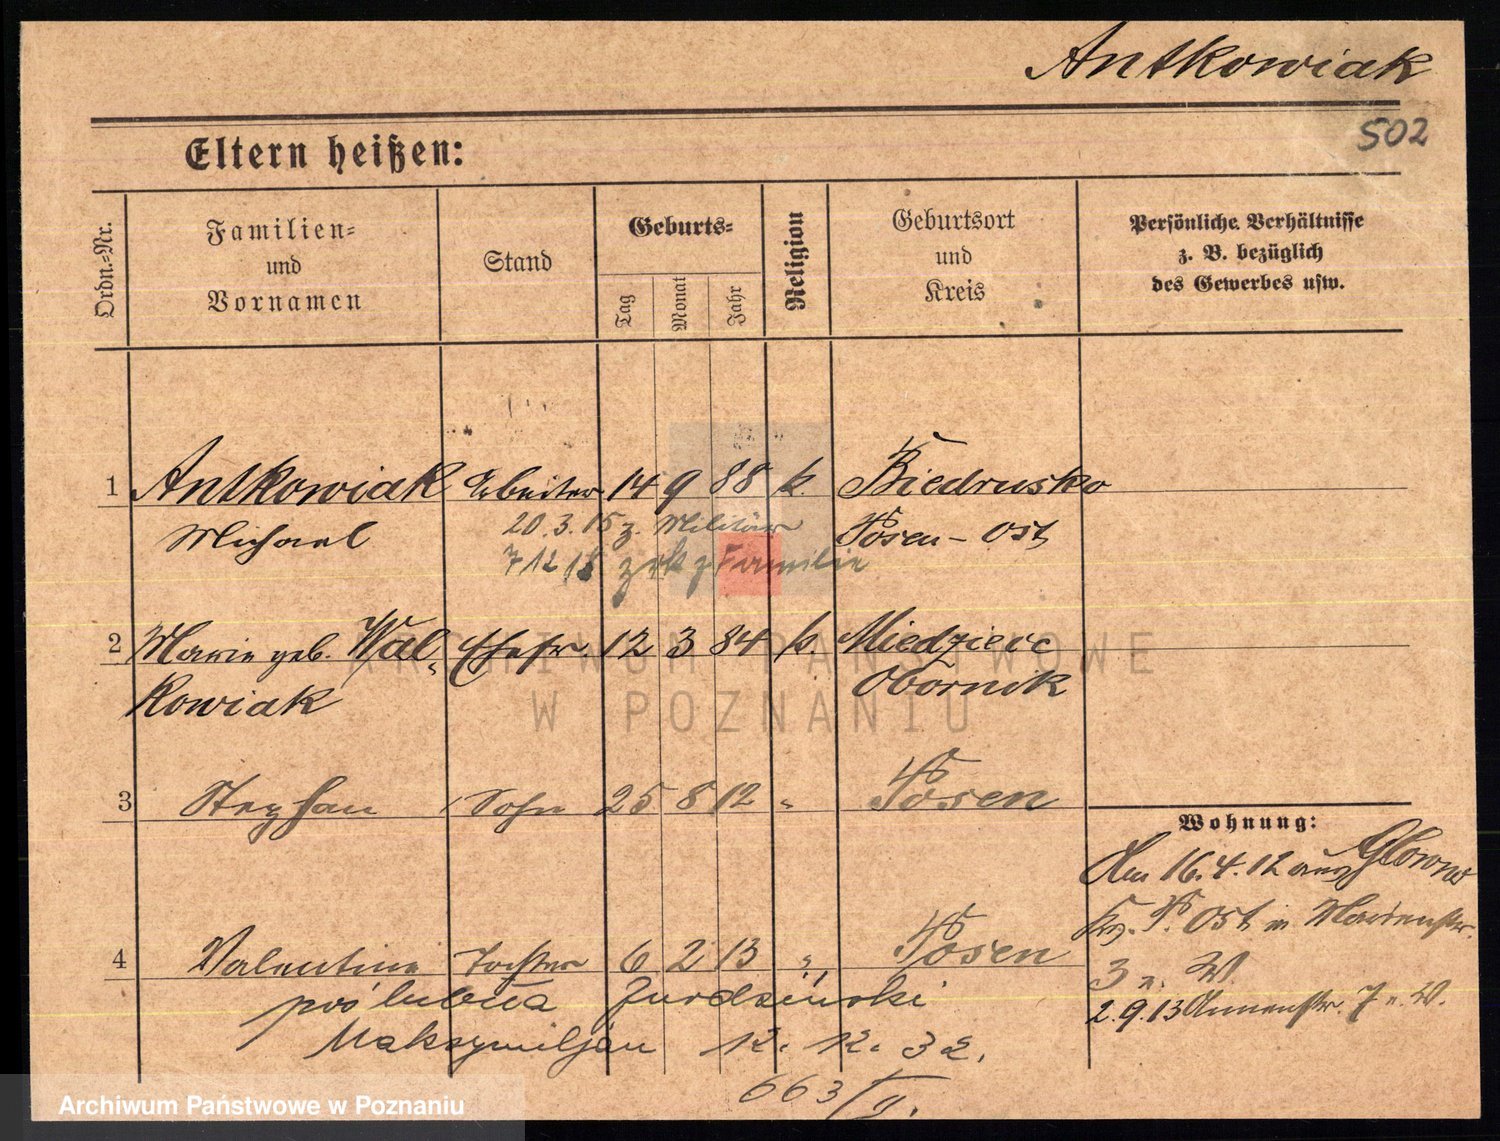 Antkowiak
502
Eltern heißen:
Ordn.-Nr.
Familien-
und
Vornamen
Stand
Geburts-
Tag
Monat
Jahr
Religion
Geburtsort
und
Kreis
Persönliche Verhältnisse
z. B. bezüglich
des Gewerbes usw.
1 Antkowiak Arbeiter 14 9 88 k. Biedrusko
Michael 20.3.15 z. Militär Posen-Ost
7 12 18 zrk z Familie
2 Marie geb. Wal- Ehefr. 12 3 84 k. Miedzierc
kowiak Obornik
ARCHIWUM PAŃSTWOWE
W POZNANIU
3 Stephan Sohn 25 8 12 " Posen
4 Valentine Tochter 6 2 13 " Posen
poślubiła Jurdzinski
Maksymiljan 12. 12. 32.
663/II.
Wohnung:
Am 16.4.12 aus Glowno
Kr. P. Ost in Marienstr.
3 n. W.
2.9.13 Annenstr. 7 n. W.
Archiwum Państwowe w Poznaniu